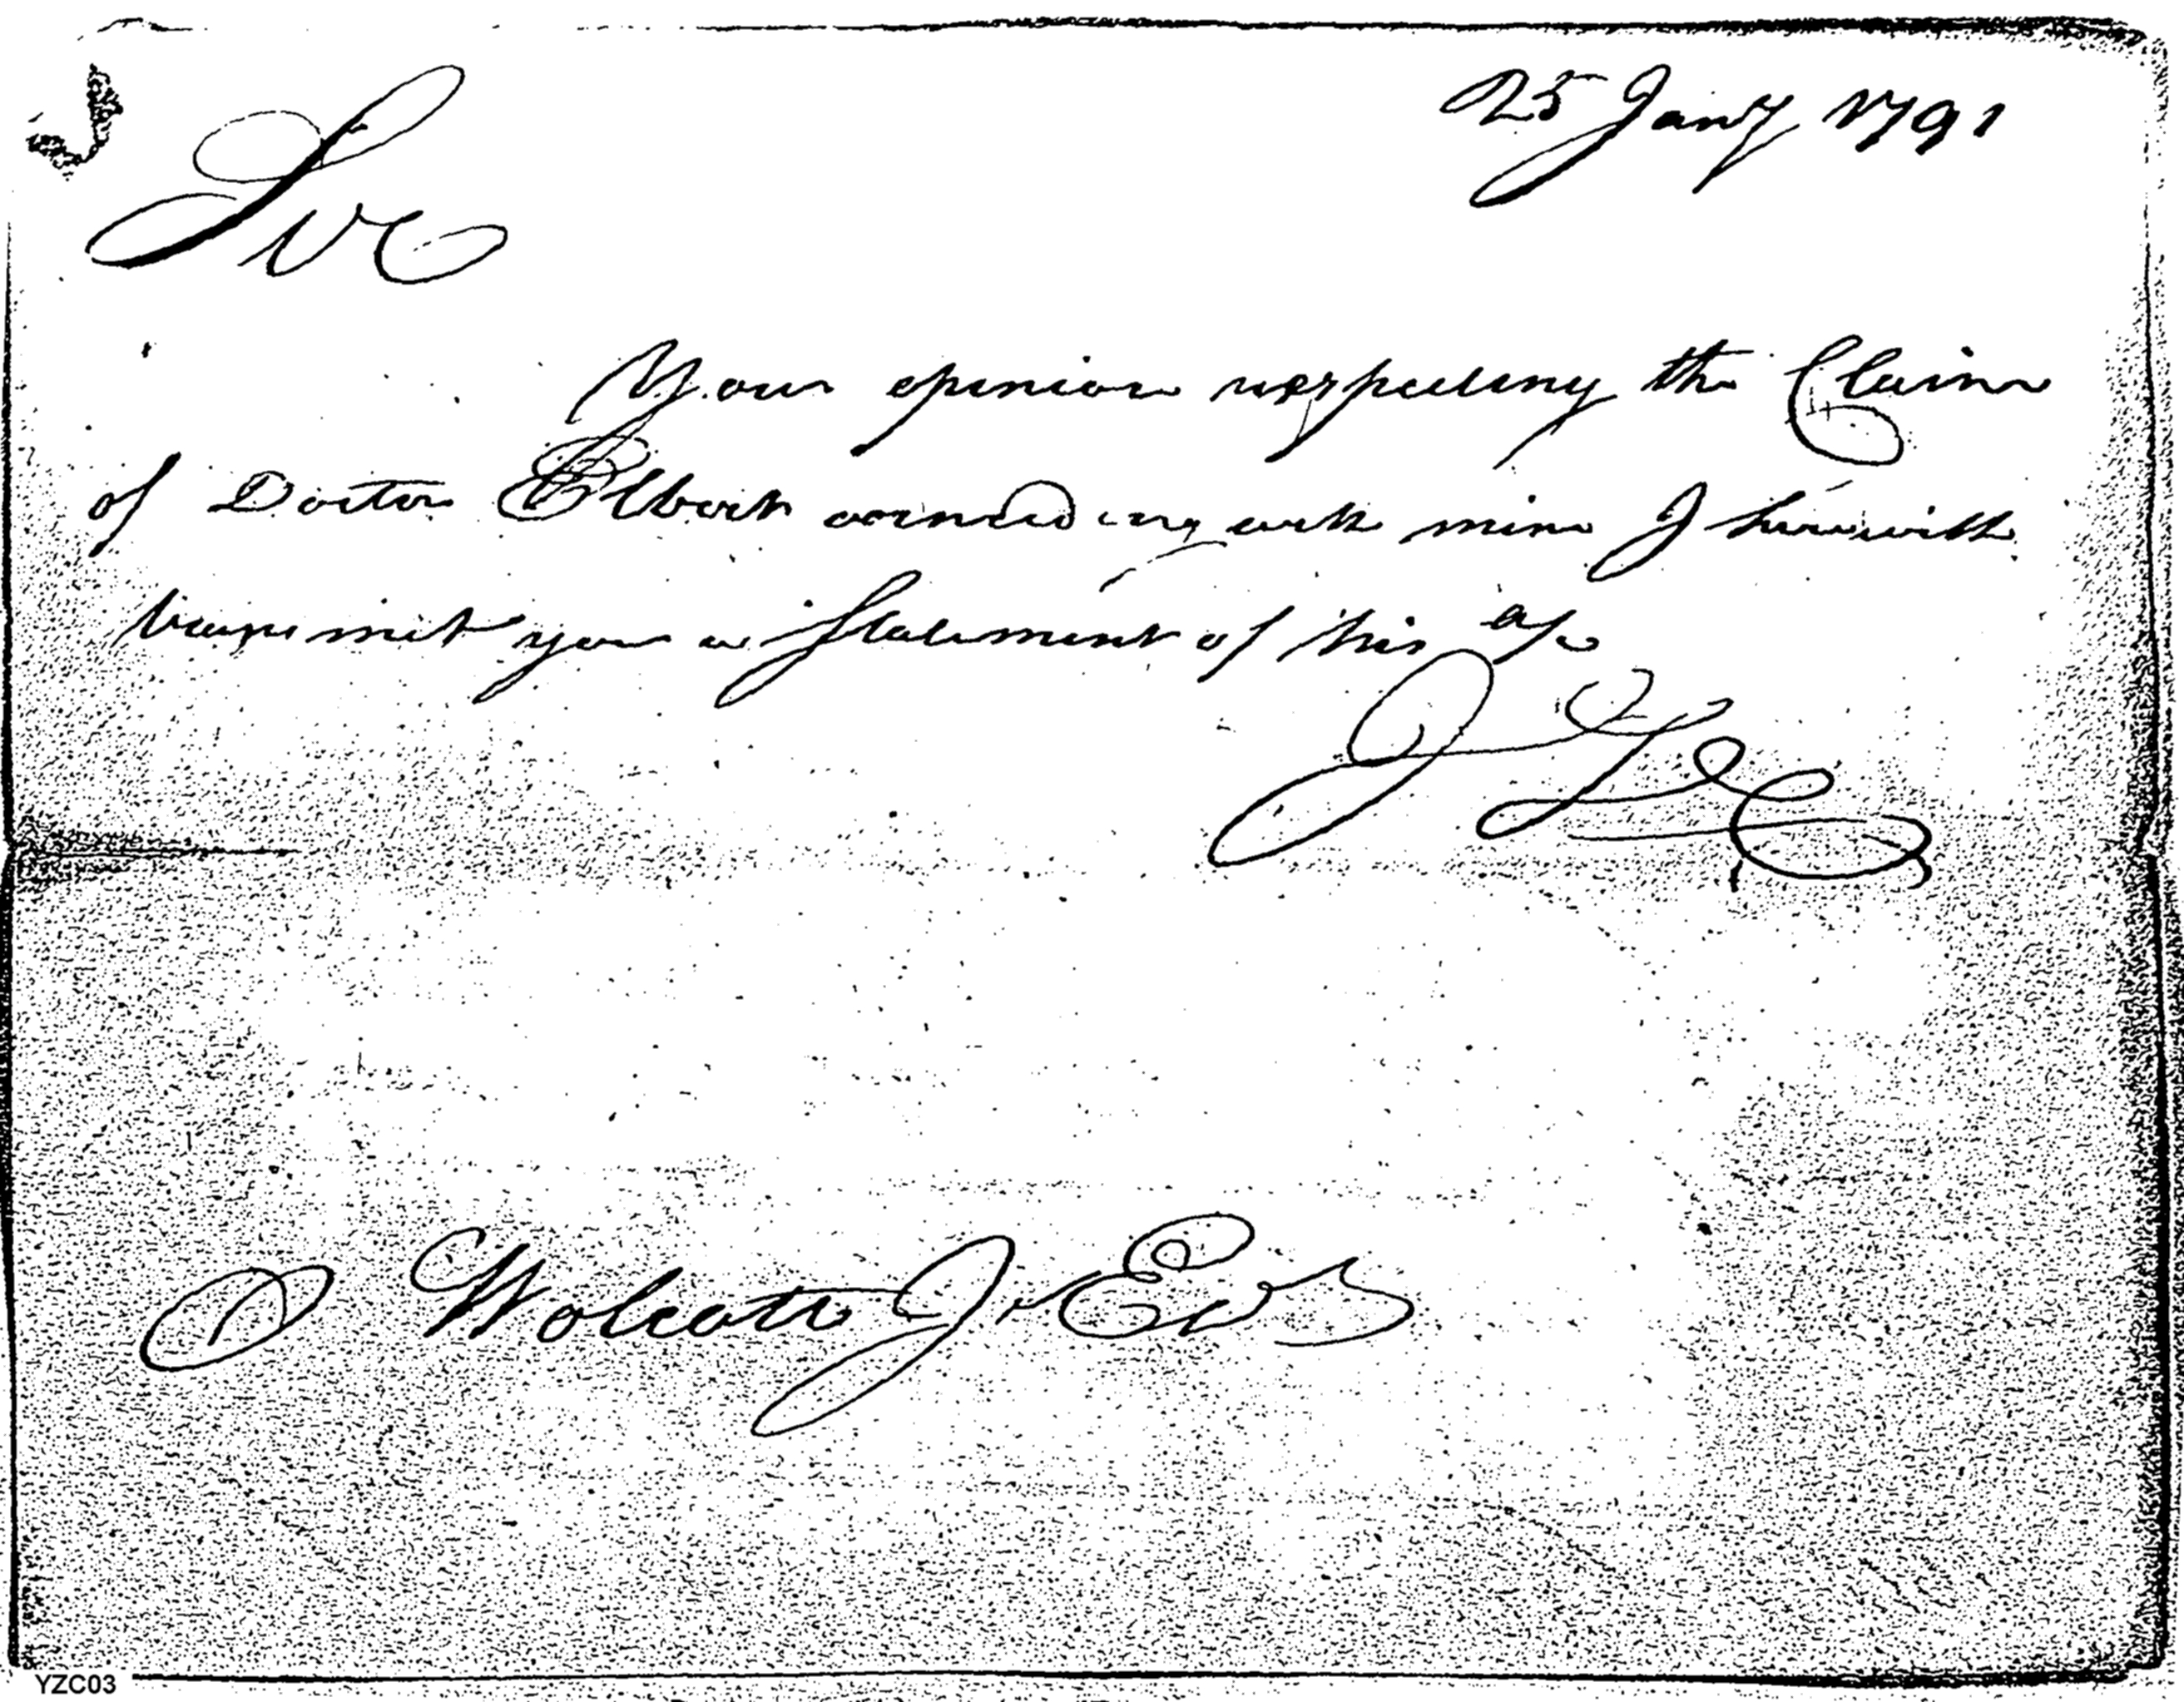 25 Jany 1791
Sir
Your opinion respecting the Claim
of Doctor Elbert coinciding with mine I herewith
transmit you a Statement of his a/c
O Wolcott Jr Esq
YZC03